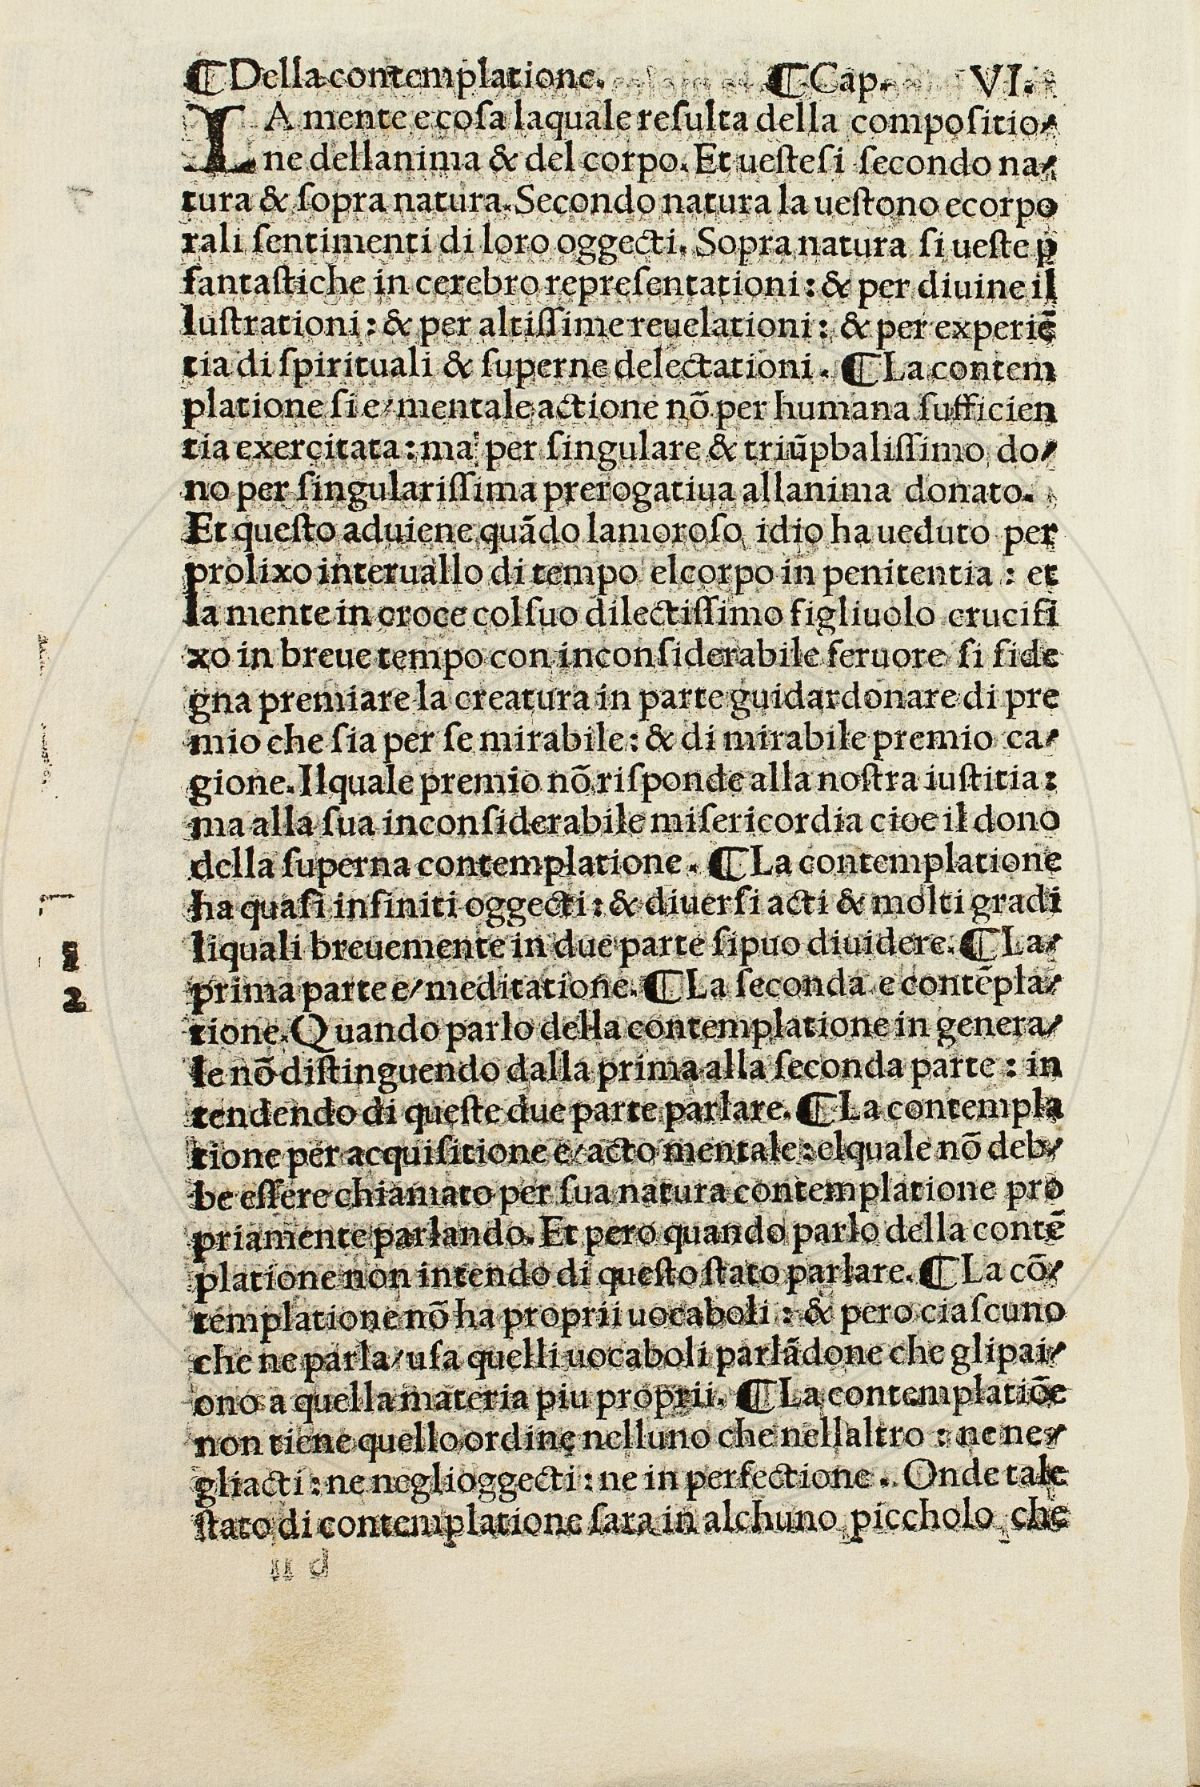 ¶Della contemplatione. ¶Cap. VI.
LA mente e cosa laquale resulta della compositio⸗
ne dellanima & del corpo. Et uestesi secondo na⸗
tura & sopra natura. Secondo natura la uestono ecorpo
rali sentimenti di loro oggecti. Sopra natura si ueste ꝑ
fantastiche in cerebro representationi: & per diuine il
lustrationi: & per altissime reuelationi: & per experiẽ
tia di spirituali & superne delectationi. ¶La contem
platione si e/ mentale actione nõ per humana sufficien
tia exercitata: ma per singulare & triũphalissimo do⸗
no per singularissima prerogatiua allanima donato.
Et questo aduiene quãdo lamoroso idio ha ueduto per
prolixo interuallo di tempo elcorpo in penitentia: et
la mente in croce colsuo dilectissimo figliuolo crucifi
xo in breue tempo con inconsiderabile feruore si fide
gna premiare la creatura in parte guidardonare di pre
mio che sia per se mirabile: & di mirabile premio ca⸗
gione. Ilquale premio nõ risponde alla nostra iustitia:
ma alla sua inconsiderabile misericordia cioe il dono
della superna contemplatione. ¶La contemplatione
ha quasi infiniti oggecti: & diuersi acti & molti gradi
liquali breuemente in due parte sipuo diuidere. ¶La⸗
1 prima parte e/ meditatione. ¶La seconda e contẽpla⸗
2 tione. Quando parlo della contemplatione in genera⸗
le nõ distinguendo dalla prima alla seconda parte: in
tendendo di queste due parte parlare. ¶La contempla
tione per acquisitione e/ acto mentale: elquale nõ deb⸗
be essere chiamato per sua natura contemplatione pro
priamente parlando. Et pero quando parlo della contẽ
platione non intendo di questo stato parlare. ¶La cõ⸗
templatione nõ ha proprii uocaboli: & pero ciascuno
che ne parla/ usa quelli uocaboli parlãdone che glipai⸗
ono a quella materia piu proprii. ¶La contemplatiõe
non tiene quello ordine nelluno che nellaltro: ne ne⸗
gliacti: ne neglioggecti: ne in perfectione. Onde tale
stato di contemplatione sara in alchuno picc​holo che